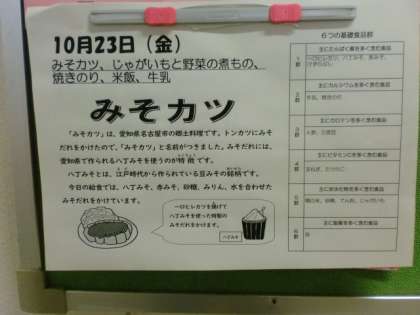 10月23日（金）
みそカツ、じゃがいもと野菜の煮もの、
焼きのり、米飯、牛乳
みそカツ
「みそカツ」は、愛知県名古屋市の郷土料理です。トンカツにみそ
だれをかけたので、「みそカツ」と名前がつきました。みそだれには、
愛知県で作られる八丁みそを使うのが特徴です。
八丁みそとは、江戸時代から作られている豆みその銘柄です。
今日の給食では、八丁みそ、赤みそ、砂糖、みりん、水を合わせた
みそだれをかけています。
一口ヒレカツを揚げて
八丁みそを使った特製の
みそだれをかけます。
八丁みそ
６つの基礎食品群
1群
主にたんぱく質を多く含む食品
2群
主にカルシウムを多く含む食品
牛乳、焼きのり
3群
主にカロテンを多く含む食品
4群
主にビタミンCを多く含む食品
5群
主に炭水化物を多く含む食品
6群
主に脂肪を多く含む食品
油